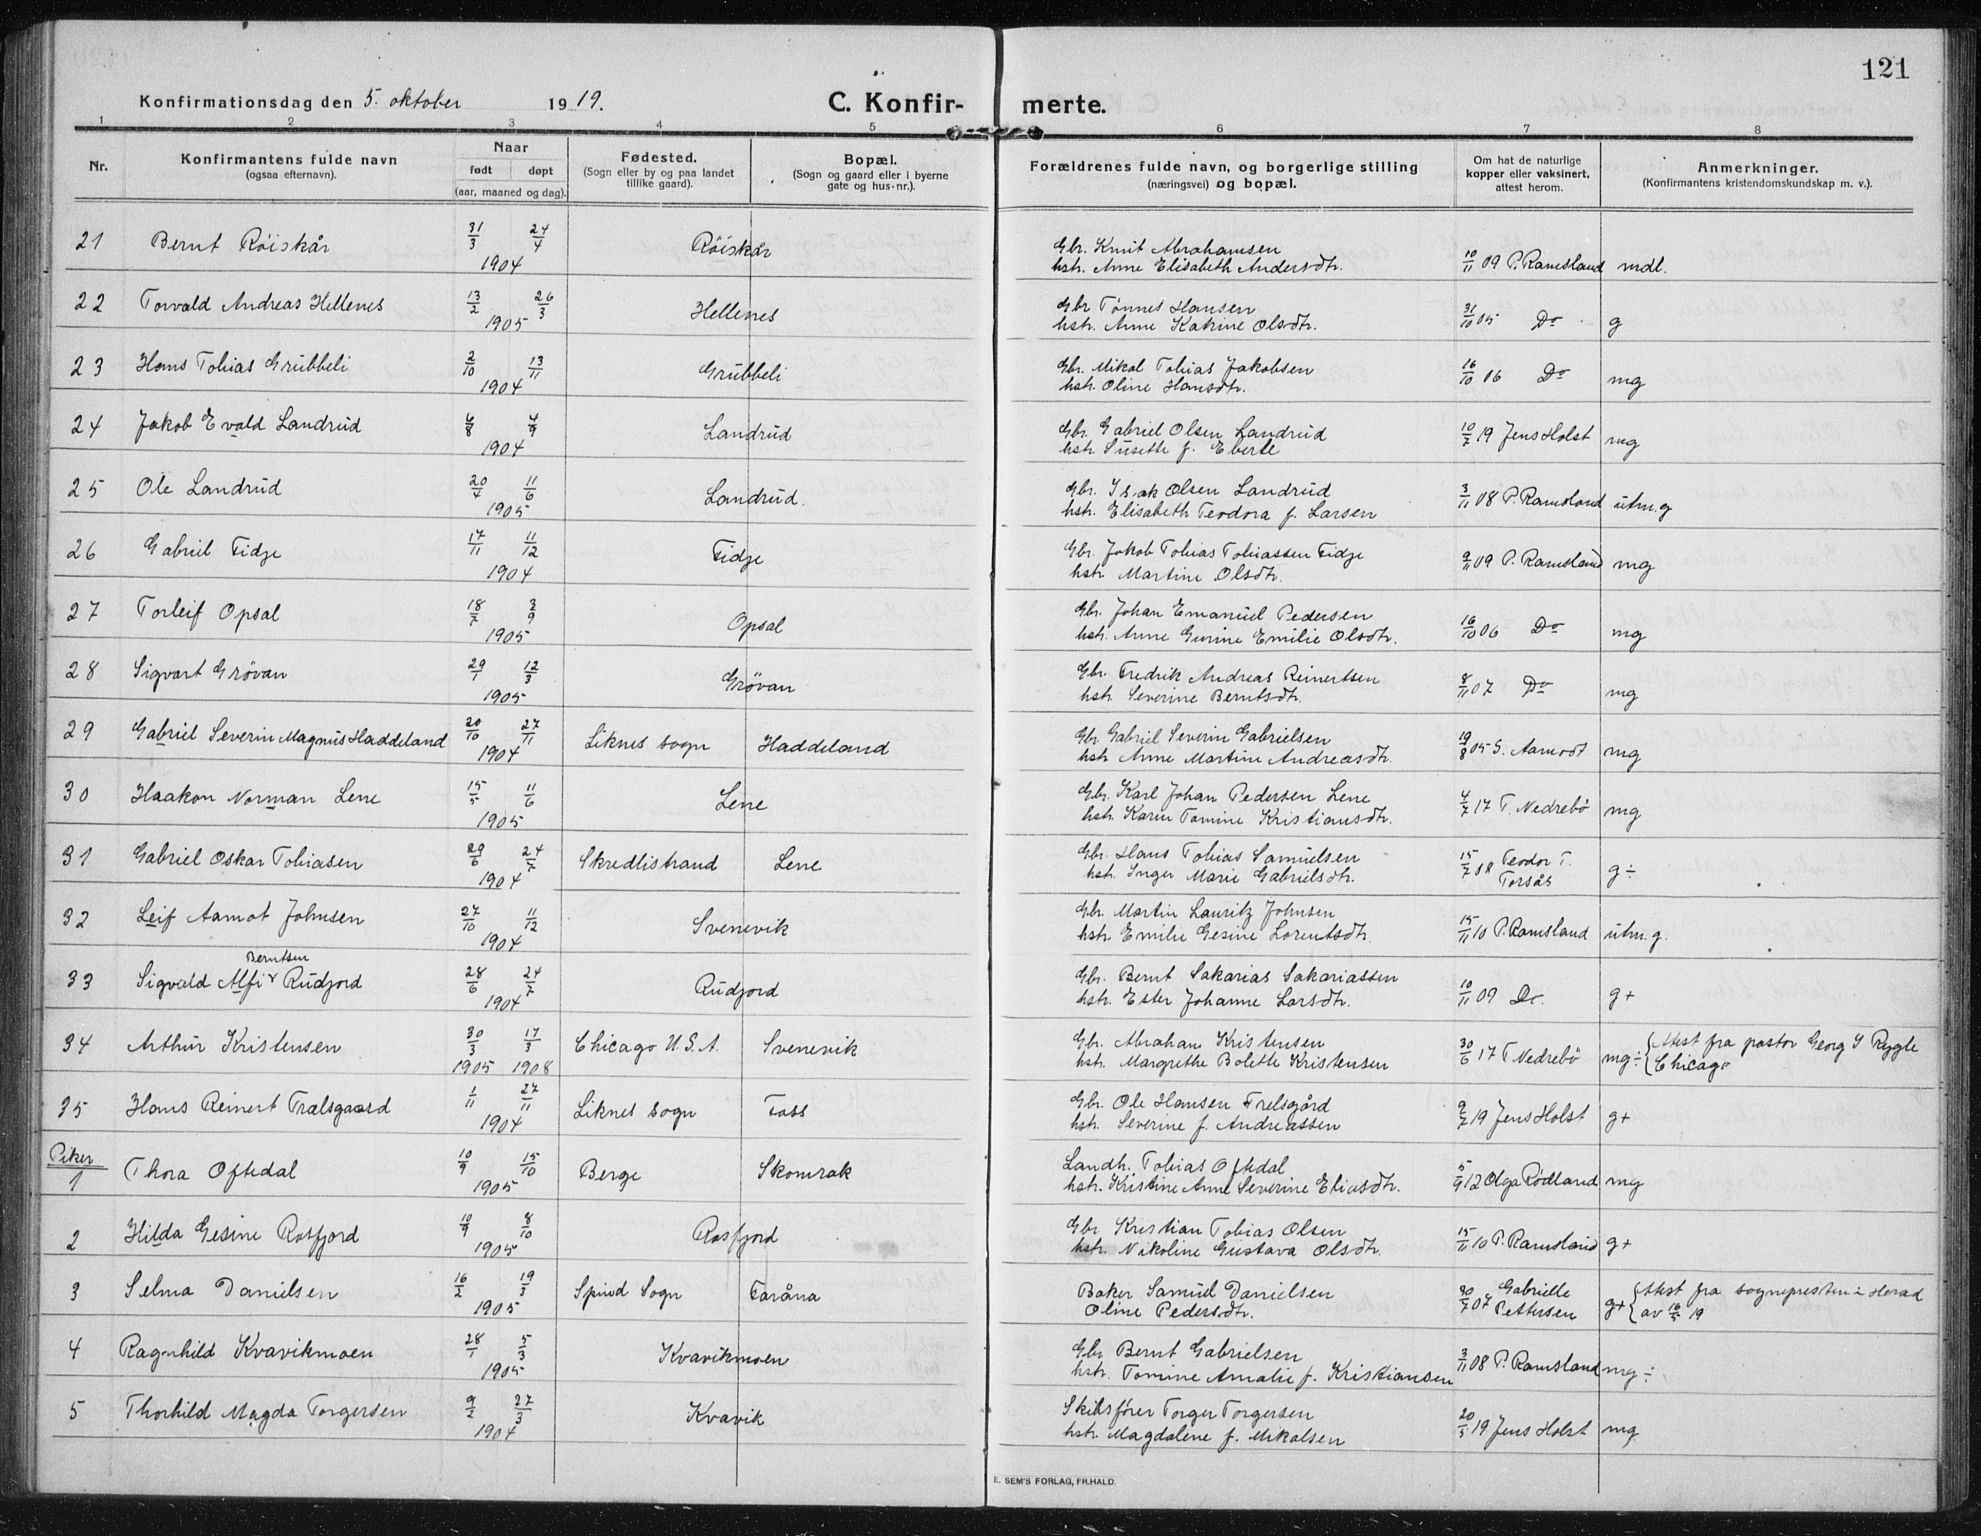 121
Konfirmationsdag den 5. oktober 1919. C. Konfirmerte.
1 2 3 4 5 6 7 8
Nr. Konfirmantens fulde navn (ogsaa efternavn). Naar født døpt (aar, maaned og dag). Fødested. (Sogn eller by og paa landet tillike gaard). Bopæl. (Sogn og gaard eller i byerne gate og hus-nr.). Forældrenes fulde navn, og borgerlige stilling (næringsvei) og bopæl. Om hat de naturlige kopper eller vaksinert, attest herom. Anmerkninger. (Konfirmantens kristendomskundskap m. v.).
21 Bernt Röiskår 31/3 24/4 1904 Röiskår Gbr. Knut Abrahamsen hstr. Anne Elisabeth Andersdtr. 10/11 09 P. Ramsland mdl.
22 Torvald Andreas Hellenes 13/2 26/3 1905 Hellenes Gbr Tønnes Hansen hstr. Anne Katrine Olsdtr. 31/10 05 Do g
23 Hans Tobias Grubbeli 2/10 13/11 1904 Grubbeli Gbr. Mikal Tobias Jakobsen hstr. Oline Hansdtr. 16/10 06 Do mg
24 Jakob Evald Landrud 4/8 4/9 1904 Landrud Gbr. Gabriel Olsen Landrud hstr. Susette f. Eberle 10/7 19 Jens Holst mg
25 Ole Landrud 20/4 11/6 1905 Landrud. Gbr. Isak Olsen Landrud hstr. Elisabeth Teodora f. Larsen 3/11 08 P. Ramsland utm. g
26 Gabriel Fidje 17/11 11/12 1904 Fidje Gbr. Jakob Tobias Tobiassen Fidje hstr Martine Olsdtr. 9/11 09 P. Ramsland mg
27 Torleif Opsal 18/7 3/9 1905 Opsal Gbr. Johan Emanuel Pedersen hstr. Anne Gurine Emilie Olsdtr. 16/10 06 Do mg
28 Sigvart Grövan 29/1 12/3 1905 Grövan Gbr. Fredrik Andreas Reinertsen hstr Severine Berntsdtr. 8/11 07 Do mg
29 Gabriel Severin Magnus Haddeland 20/10 27/11 1904 Liknes sogn Haddeland Gbr Gabriel Severin Gabrielsen hstr Anne Martine Andreasdtr. 19/8 05 S. Aamodt mg
30 Haakon Norman Lene 15/5 11/6 1905 Lene Gbr. Karl Johan Pedersen Lene hstr. Karin Tomine Kristiansdtr. 4/7 17 T. Nedrebö mg
31 Gabriel Oskar Tobiasen 29/6 24/7 1904 Skredlistrand Lene Gbr. Hans Tobias Samuelsen hstr. Inger Marie Gabrielsdtr. 15/7 18 Teodor T. Torsås g ÷
32 Leif Aamot Johnsen 27/10 11/12 1904 Svenevik Gbr. Martin Lauritz Johnsen hstr Emilie Gesine Lorentsdtr. 15/11 10 P. Ramsland utm. g.
33 Sigvald Alfir Berntsen Rudjord 28/6 24/7 1904 Rudjord Gbr. Bernt Sakarias Sakariassen hstr. Ester Johanne Larsdtr. 10/11 09 Do. g+
34 Arthur Kristensen 30/3 1905 17/3 1908 Chicago U.S.A. Svenevik Gbr. Abraham Kristensen hstr. Margrethe Bolette Kristensen 30/6 17 T Nedrebö mg÷ {Attest fra pastor Georg S Rygle Chicago
35 Hans Reinert Trælsgaard 1/11 27/11 1904 Liknes sogn Foss Gbr. Ole Hansen Frelsgård hstr. Severine f. Andreassen 9/7 19 Jens Holst g+
Piker
1 Thora Oftedal 10/9 15/10 1905 Berge Skomrak Landh. Tobias Oftedal hstr. Kristine Anne Severine Eliasdtr. 5/9 12 Olga Rødland mg
2 Hilda Gesine Rosfjord 10/9 8/10 1905 Rosfjord Gbr. Kristian Tobias Olsen hstr. Nikoline Gustava Olsdtr. 15/11 10 P. Ramsland g+
3 Selma Danielsen 16/2 19/3 1905 Spind Sogn Faråna Baker Samuel Danielsen Oline Pedersdtr. 30/7 07 Gabrielle Pettersen g+ {Attest fra sognepresten i Herad av 16/5 19
4 Ragnhild Kvavikmoen 28/1 5/3 1905 Kvavikmoen Gbr Bernt Gabrielsen hstr. Tomine Amalie f. Kristiansen 3/11 08 P. Ramsland mg ÷
5 Thorhild Magda Torgersen 9/2 27/3 1904 Kvavik Skibsfører Torger Torgersen hstr. Magdalene f. Mikalsen 20/5 19 Jens Holst mg.
E. SEM'S FORLAG, FR.HALD.